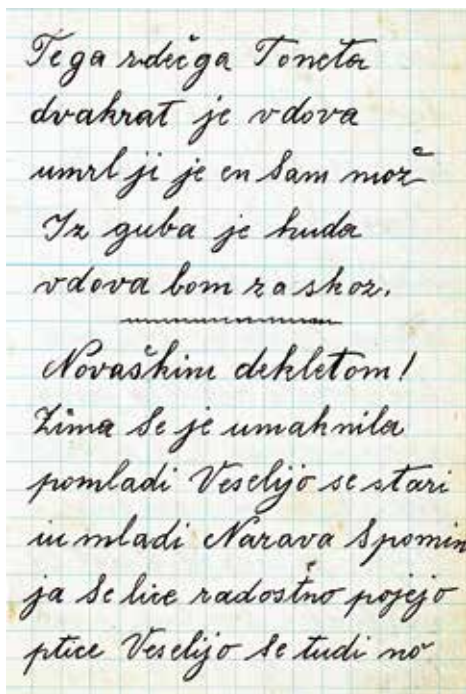 Tega rdečga Toneta
dvakrat je vdova
umrl ji je en sam mož
Iz guba je huda
vdova bom za skoz.
Novaškim dekletom!
Zima se je umaknila
pomladi Veselijo se stari
in mladi Narava Spomin
ja se lice radostno pojejo
ptice Veselijo se tudi no